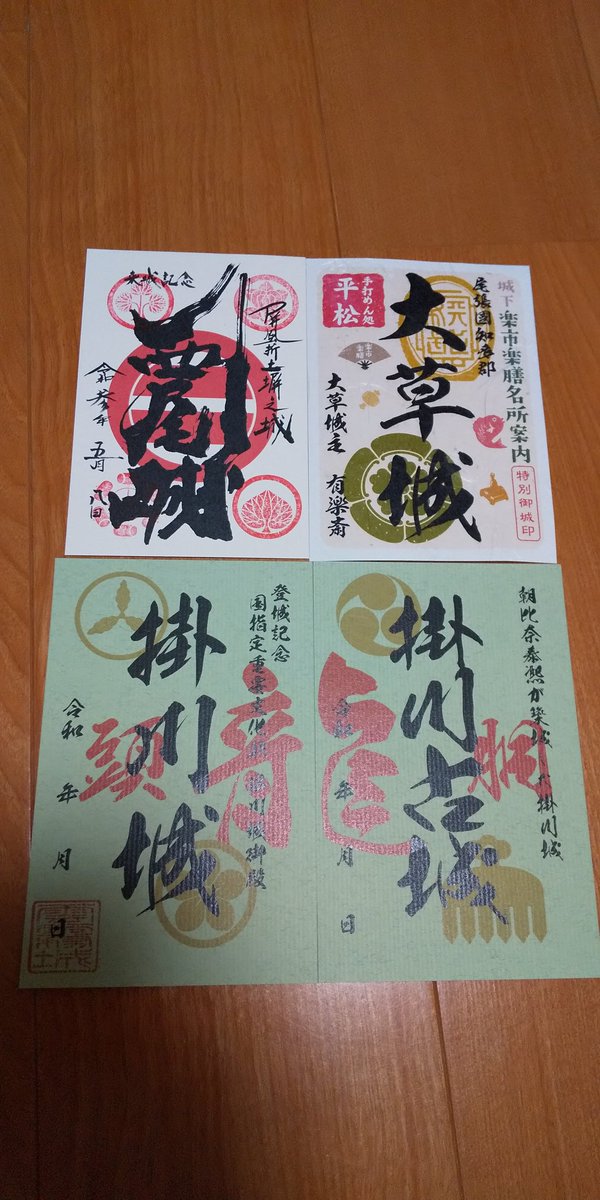 登城記念
屏風折土塀之城
西尾城
令和参年
五月
八日
城下楽市楽膳名所案内
特別御城印
尾張國知多郡
大草城
手打めん処
平松
楽市楽膳
大草城主 有楽斎
登城記念
国指定重要文化財 掛川城御殿
掛川城
青
頭
令和 年 月 日
朝比奈泰煕が築城した掛川城
掛川古城
龍
胴
令和 年 月 日